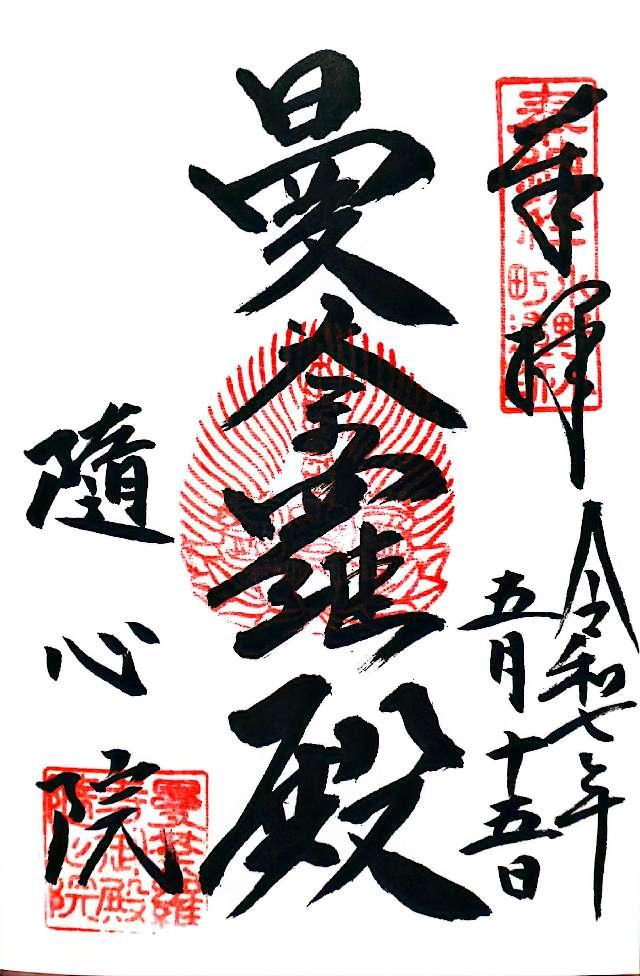 奉拝
令和七年
五月十五日
曼荼羅殿
隨心院
曼荼羅
寺御殿
隨心院